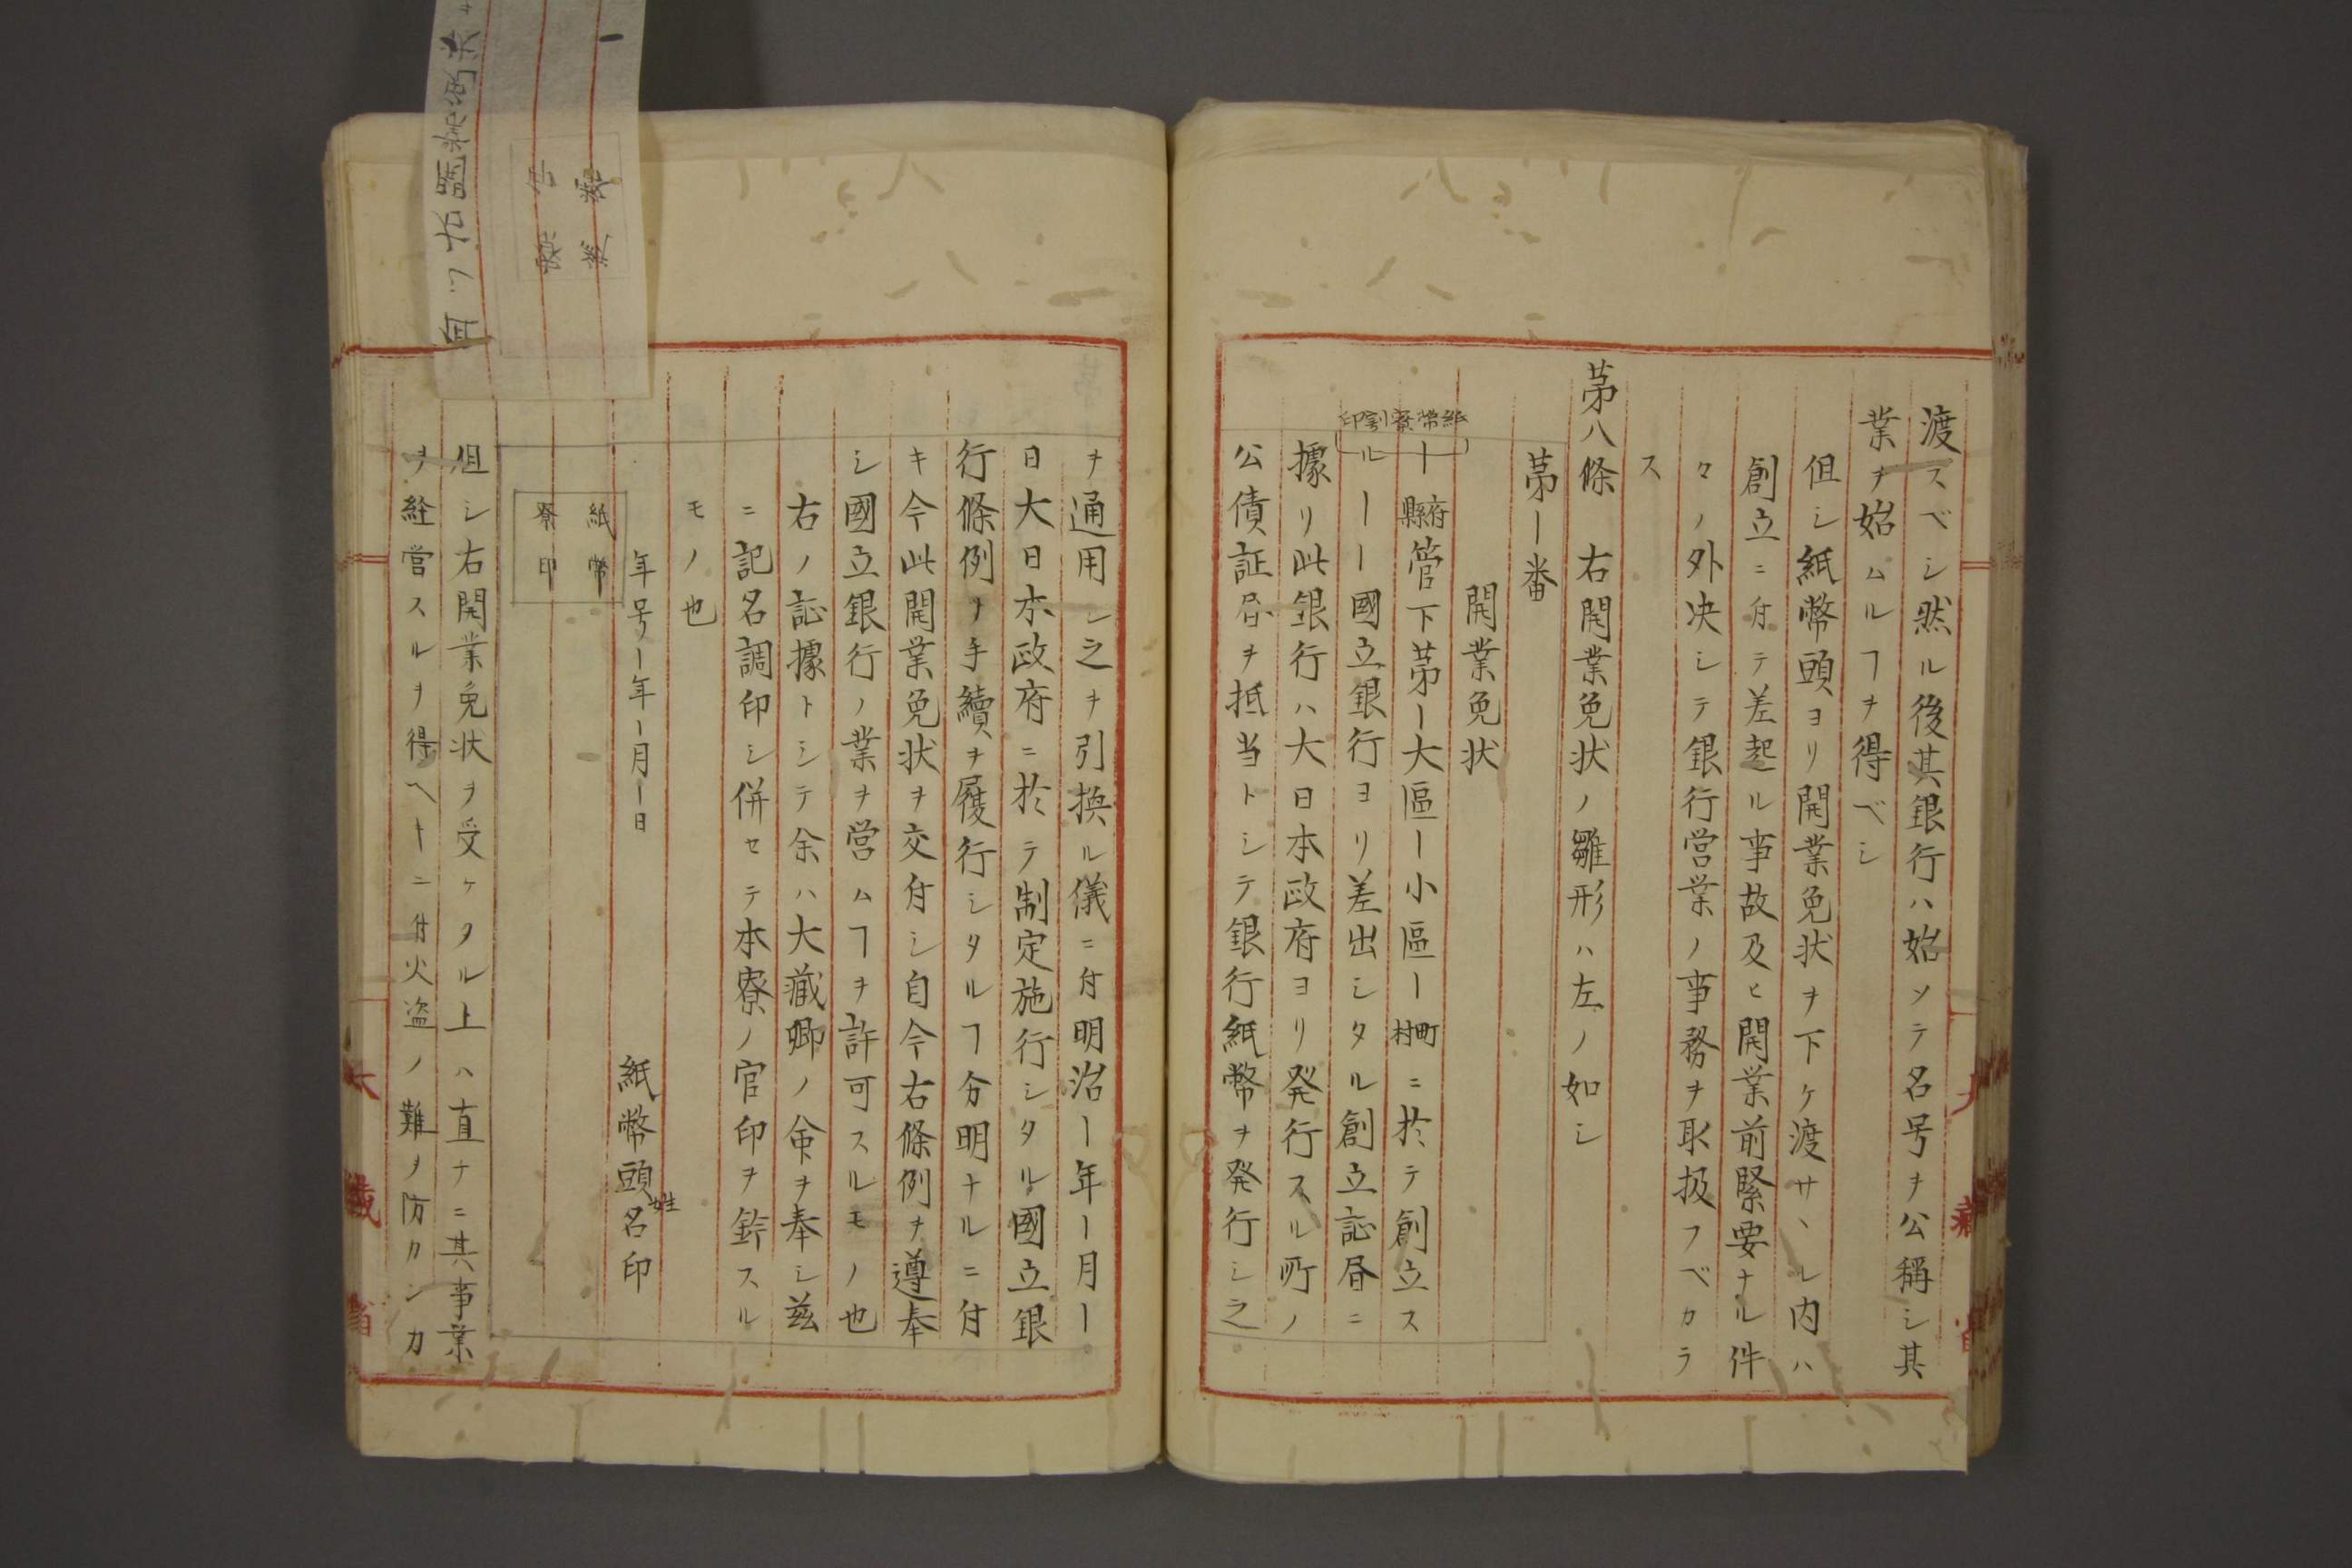 渡スベシ然ル後其銀行ハ始メテ名号ヲ公稱シ其
業ヲ始ムルヿヲ得ベシ
但シ紙幣頭ヨリ開業免状ヲ下ケ渡サヽル内ハ
創立ニ付テ差起ル事故及ヒ開業前緊要ナル件
々ノ外决シテ銀行営業ノ事務ヲ取扱フベカラ
ス
苐八條 右開業免状ノ雛形ハ左ノ如シ
苐ー番
開業免状
紙幣寮割印
ー府縣管下苐ー大區ー小區ー町村ニ於テ創立ス
ルーー國立銀行ヨリ差出シタル創立証書ニ
據リ此銀行ハ大日本政府ヨリ発行スル所ノ
公債証書ヲ抵当トシテ銀行紙幣ヲ発行シ之
ヲ通用シ之ヲ引換ル儀ニ付明治ー年ー月ー
日大日本政府ニ於テ制定施行シタル國立銀
行條例ノ手續ヲ履行シタルヿ分明ナルニ付
キ今此開業免状ヲ交付シ自今右條例ヲ遵奉
シ國立銀行ノ業ヲ営ムヿヲ許可スルモノ也
右ノ証據トシテ余ハ大藏卿ノ命ヲ奉シ茲
ニ記名調印シ併セテ本寮ノ官印ヲ鈐スル
モノ也
年号ー年ー月ー日
紙幣頭姓名印
紙幣
寮印
但シ右開業免状ヲ受ケタル上ハ直ナニ其事業
ヲ経営スルヲ得ヘーニ付火盗ノ難ヲ防カンカ
大藏省
大藏省